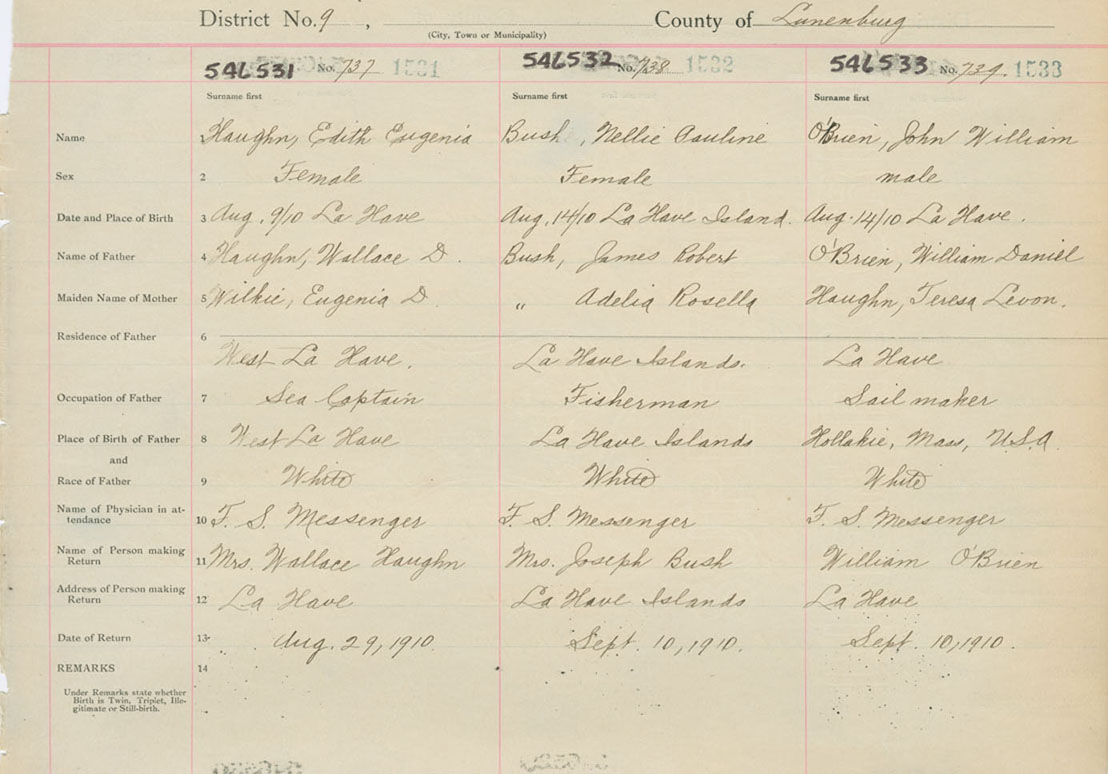 District No. 9, County of Lunenburg
(City, Town or Municipality)
546531 No. 737 1531 546532 No. 738 1532 546533 No. 739. 1533
Surname first Surname first Surname first
Name 1 Haughn, Edith Eugenia Bush, Nellie Pauline O'Brien, John William
Sex 2 Female Female male
Date and Place of Birth 3 Aug. 9/10 La Have Aug. 14/10 La Have Island. Aug. 14/10 La Have.
Name of Father 4 Haughn, Wallace D. Bush, James Robert O'Brien, William Daniel
Maiden Name of Mother 5 Wilkie, Eugenia D. " Adelia Rosella Haughn, Teresa Levon.
Residence of Father 6
West La Have. La Have Islands. La Have
Occupation of Father 7 Sea Captain Fisherman Sail maker
Place of Birth of Father 8 West La Have La Have Islands Hollakie, Mass, U.S.A.
and
Race of Father 9 White White White
Name of Physician in at-
tendance 10 F. S. Messenger F. S. Messenger F. S. Messenger
Name of Person making
Return 11 Mrs. Wallace Haughn Mrs. Joseph Bush William O'Brien
Address of Person making
Return 12 La Have La Have Islands La Have
Date of Return 13 Aug. 29, 1910. Sept. 10, 1910. Sept. 10, 1910.
REMARKS 14
Under Remarks state whether
Birth is Twin, Triplet, Ille-
gitimate or Still-birth.